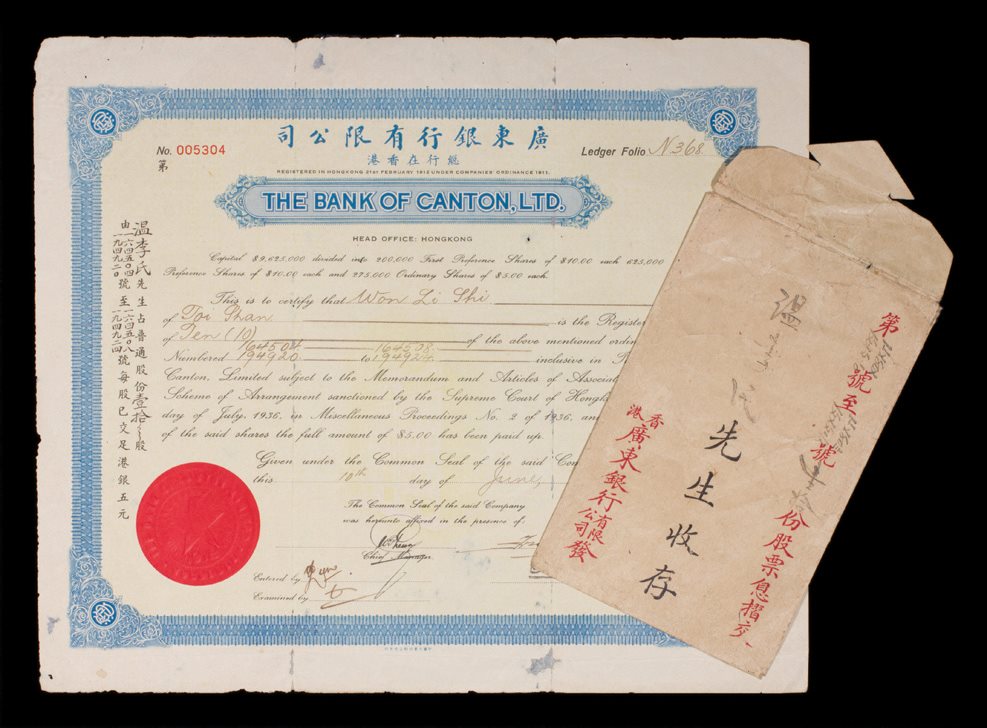 No. 005304
第
廣東銀行有限公司
總行在香港
REGISTERED IN HONGKONG 21ST FEBRUARY 1912 UNDER COMPANIES' ORDINANCE 1911.
Ledger Folio N 368.
THE BANK OF CANTON, LTD.
HEAD OFFICE: HONGKONG
Capital $9,625,000 divided into 200,000 First Preference Shares of $10.00 each 625,000
Preference Shares of $10.00 each and 275,000 Ordinary Shares of $5.00 each.
This is to certify that Won Li Shi
of Toi Shan is the Register
of Ten (10) of the above mentioned ordin
164504 164508
Numbered 194920 to 194924 inclusive in
Canton, Limited subject to the Memorandum and Articles of Associat
Scheme of Arrangement sanctioned by the Supreme Court of Hongk
day of July, 1936, in Miscellaneous Proceedings No. 2 of 1936, and
of the said shares the full amount of $5.00 has been paid up.
Given under the Common Seal of the said Com
this 10th day of June,
The Common Seal of the said Company
was hereunto affixed in the presence of
Chief Manager.
Entered by
Examined by
溫李氏先生占普通股份壹拾股
由一六四五〇四號至一六四五〇八號每股已交足港銀五元
一九四九二〇 一九四九二四
第 號至 號 份股票息摺交
溫 氏先生收存
香港廣東銀行有限公司發